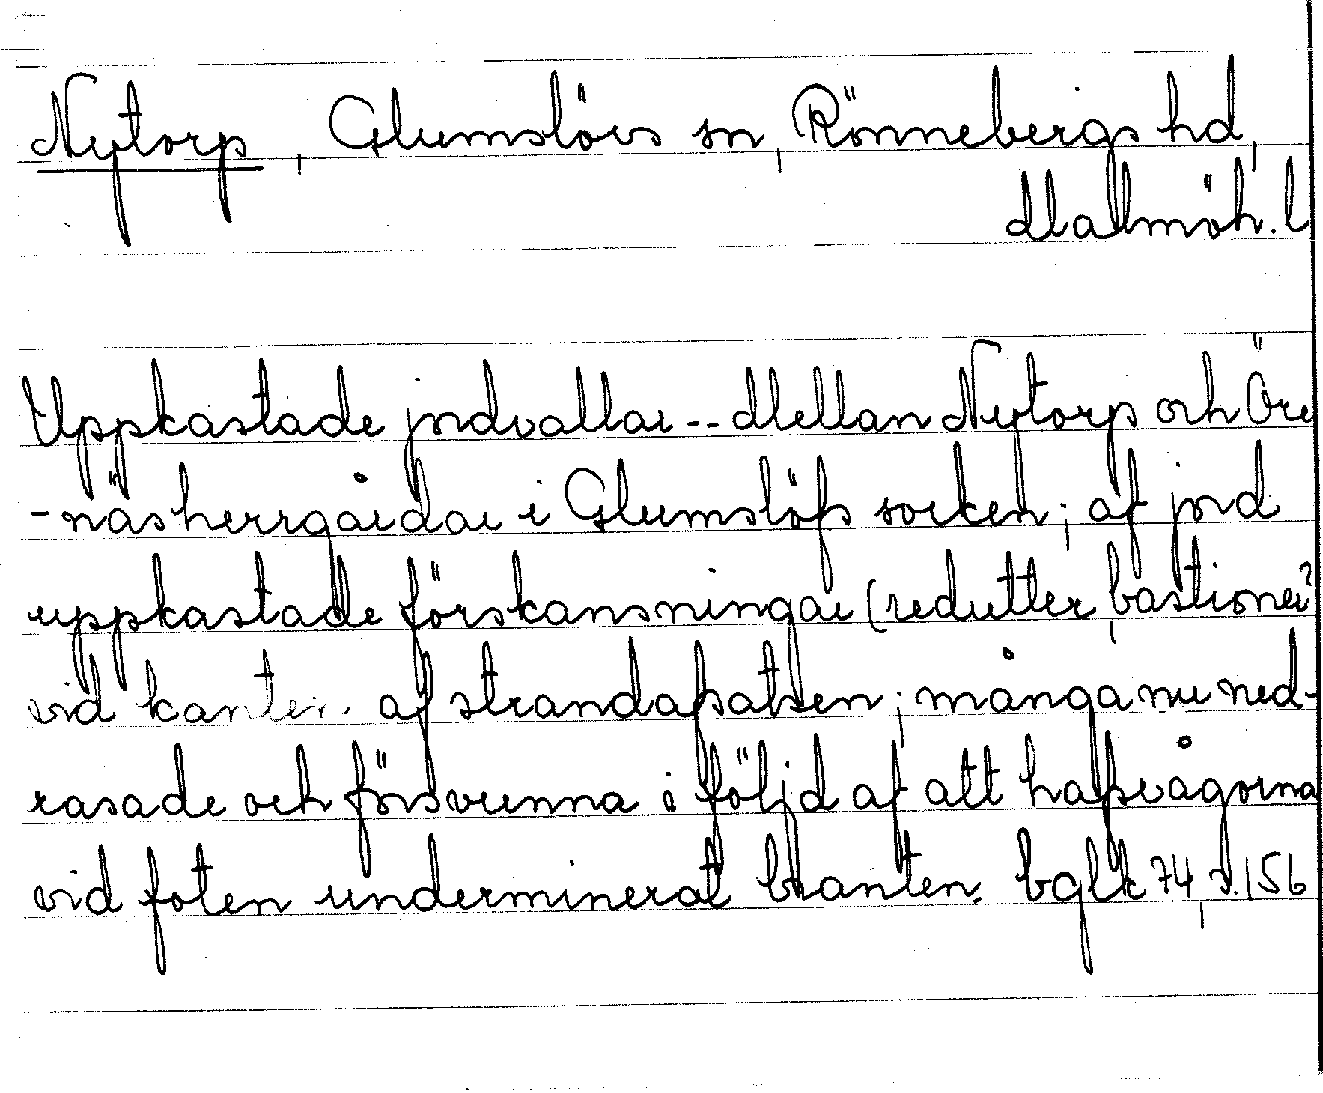 Nytorp, Glumslövs sn, Rönnebergs hd,
Malmöh. l
Uppkastade jordvallar -- Mellan Nytorp och Öre
-näs herrgårdar i Glumslöfs socken; af jord
uppkastade förskansningar (redutter, bastioner?
vid kanten af strandafsatsen; många nu ned-
rasade och försvunna i följd af att hafsvågorna
vid foten underminerat branten. bglk 74, s. 156